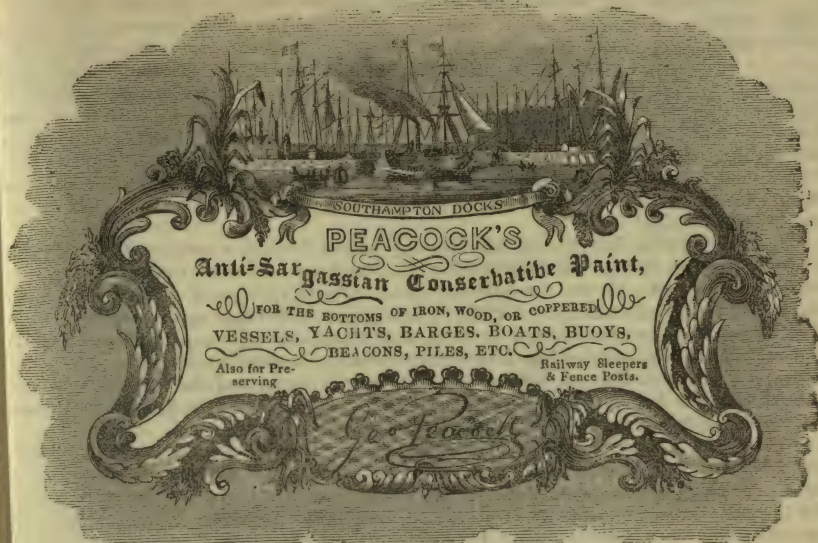 SOUTHAMPTON DOCKS
PEACOCK'S
Anti-Sargassian Conservative Paint,
FOR THE BOTTOMS OF IRON, WOOD, OR COPPERED
VESSELS, YACHTS, BARGES. BOATS, BUOYS,
BEACONS, PILES, ETC.
Also for Pre-
serving
Railway Sleepers
& Fence Posts.
Geo Peacock